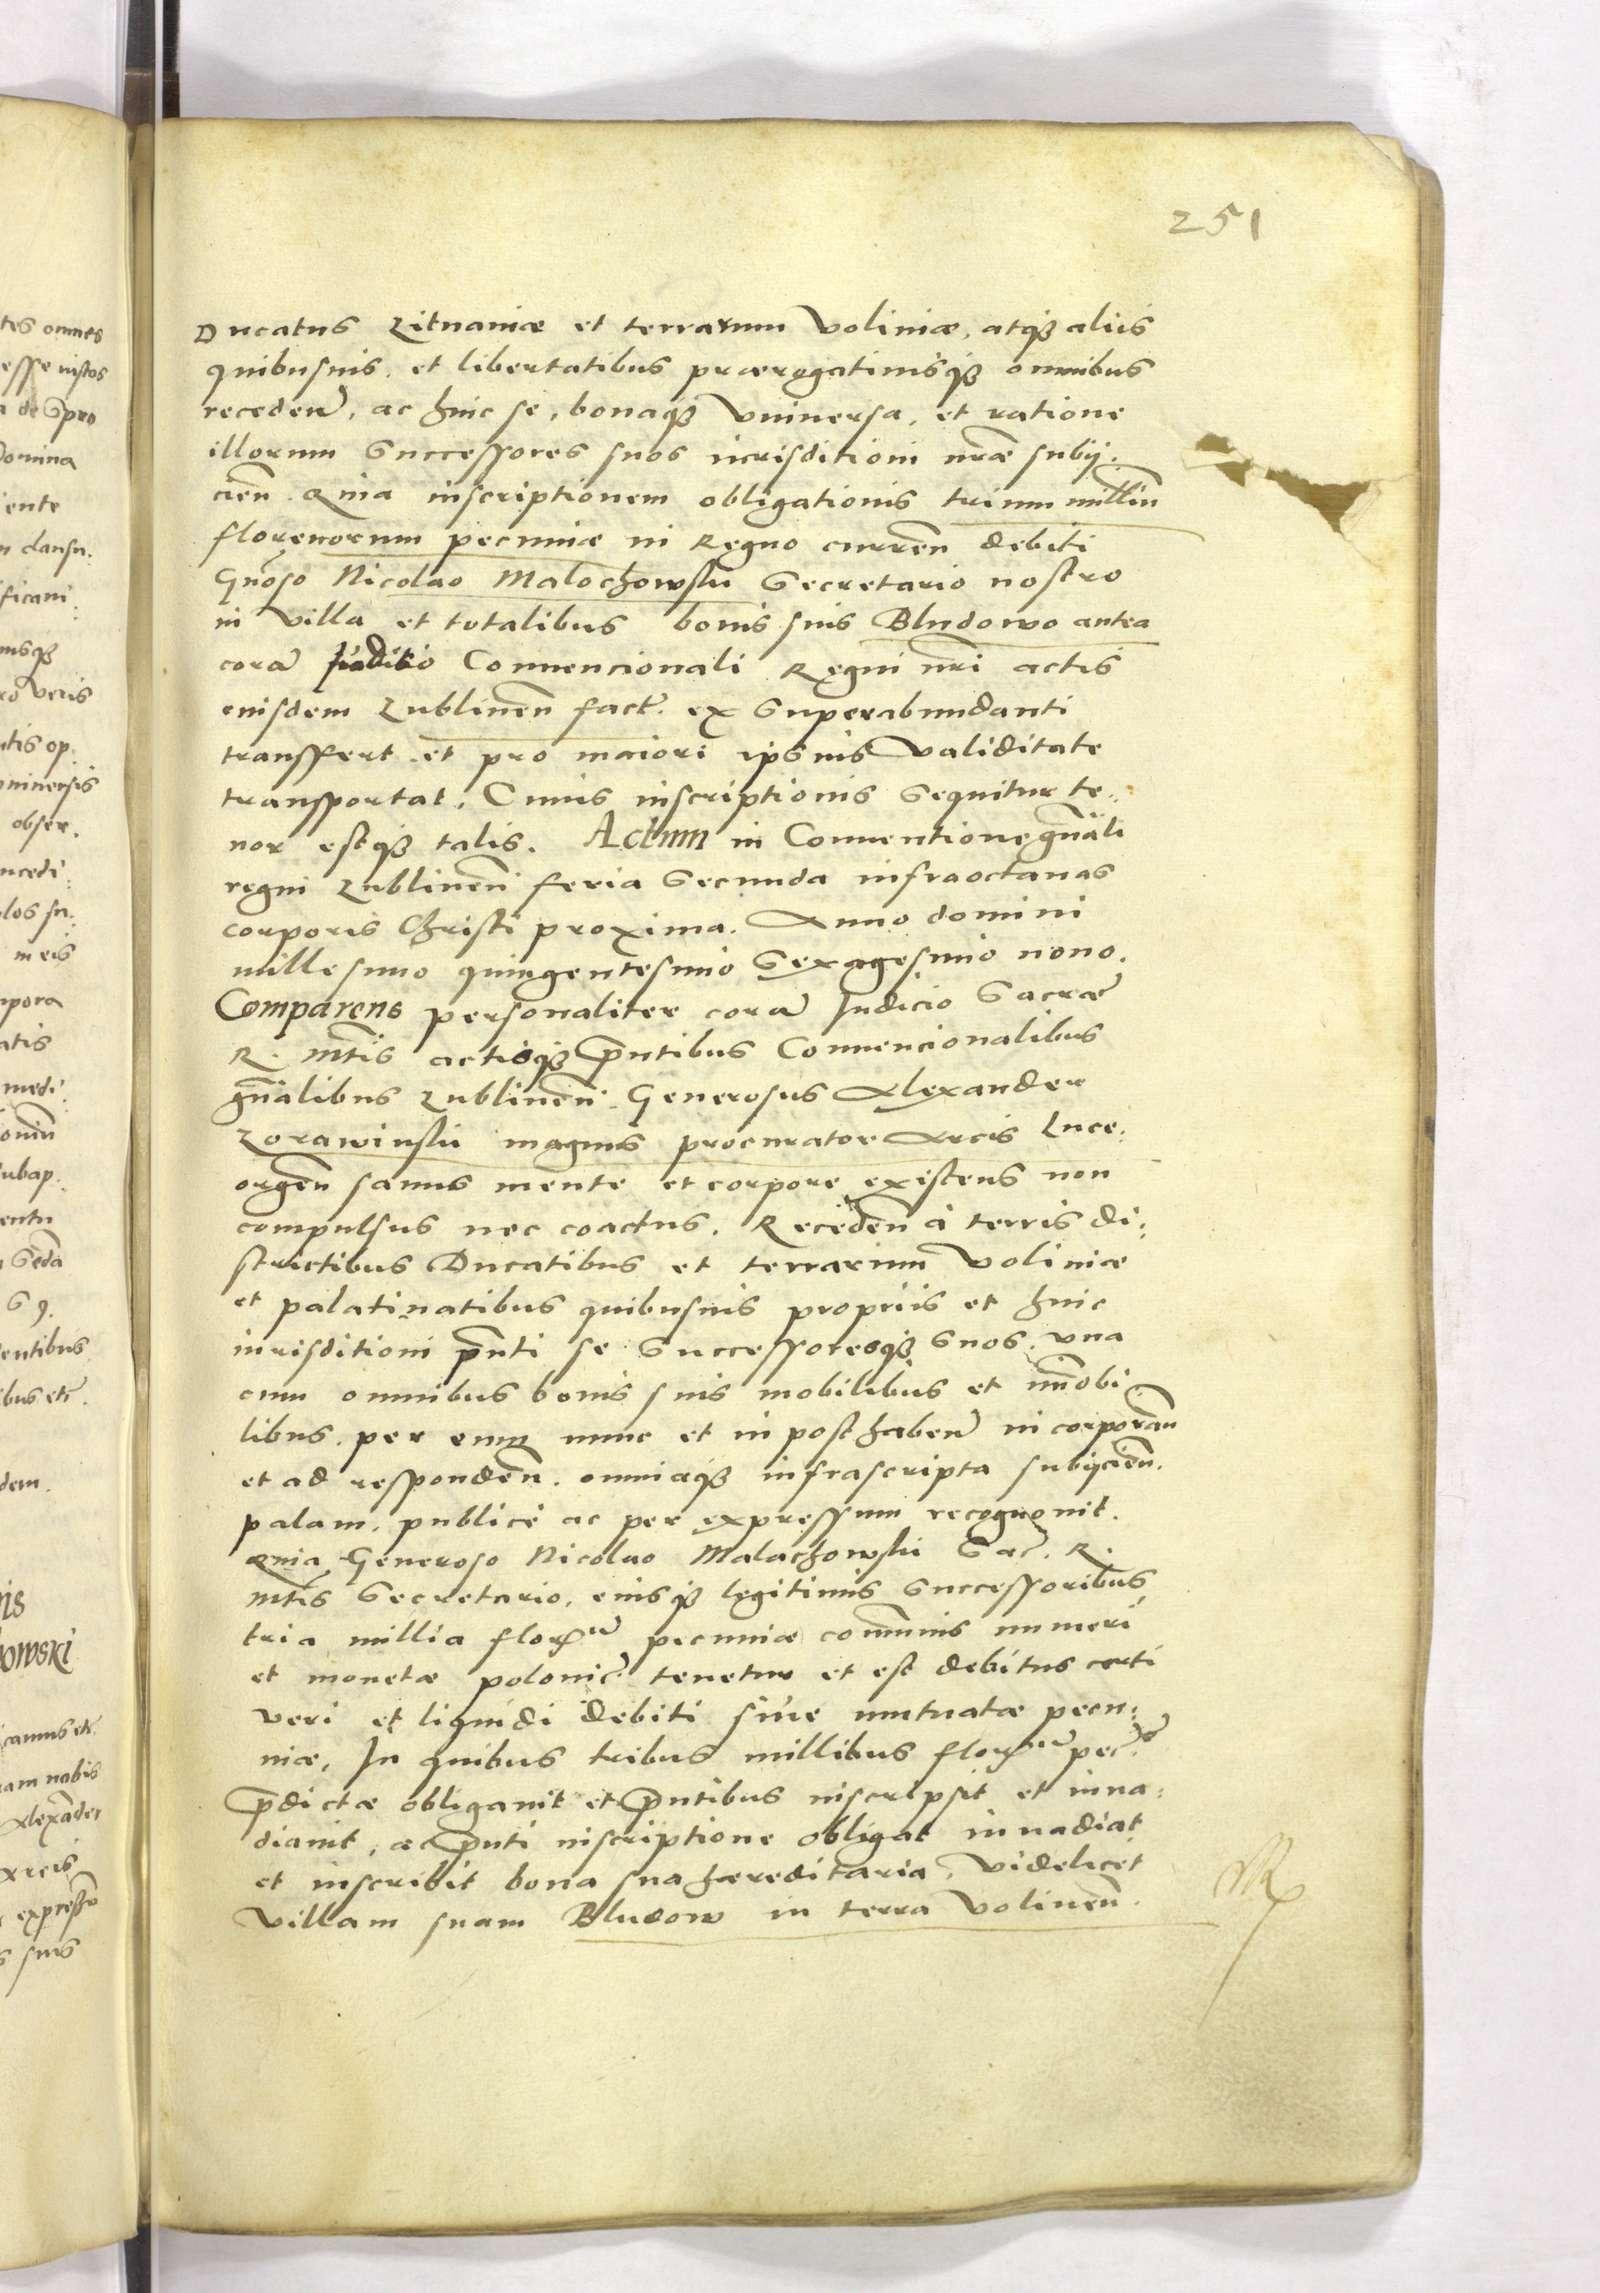 251
Ducatus Litvaniæ et terrarum Voliniæ, atq3 aliis
quibusuis, et libertatibus prærogatiuisq3 omnibus
receden̄, ac huic se, bonaq3 vniuersa, et ratione
illorum Successores suos iurisditioni nr̄æ subij.
cien̄. Quia inscriptionem obligationis trium milliū
florenorum pecuniæ in Regno curren̄ debiti
Gn̄oso Nicolao Malochowski Secretario nostro
in villa et totalibus bonis suis Bludowo antea
corā Juditio Conuencionali Regni nr̄i actis
eiusdem Lublinen̄ fact̄. ex Superabundanti
transffert et pro maiori ipsius validitate
transportat. Cuius inscriptionis Sequitur te:
nor estq3 talis. Actum in Conuentione gn̄ali
regni Lublinen̄ feria Secunda infra octauas
corporis Christi proxima. Anno domini
millesimo quingentesimo Sexagesimo nono.
Comparens personaliter corā Judicio Sacræ
R. Mt̄is actisq3 p̄ntibus Conuencionalibus
gn̄alibus Lublinen̄. Generosus Alexander
Zorawinski magnus procurator Arcis Luce:
orgen̄ sanus mente et corpore existens non
compulsus nec coactus. Receden̄ à terris di:
strictibus Ducatibus et terrarum Voliniæ
et palatinatibus quibusuis propriis et huic
iurisditioni p̄nti se Successoresq3 Suos vna
cum omnibus bonis suis mobilibus et im̄obi
libus, per eum nunc et in post haben̄ incorporan̄
et ad responden̄. omniaq3 infrascripta subijcien̄.
palam, publice ac per expressum recognouit.
Quia Generoso Nicolao Malachowski Sac̄. R.
Mt̄is Secretario, eiusq3 legitimis Successoribus
tria millia florum pecuniæ com̄unis numeri
et monetæ polonic̄. tenetur et est debitus certi
veri et liquidi debiti siue mutuatæ pecu:
niæ, In quibus tribus millibus florum pec̄æ
p̄dictæ obligauit et p̄ntibus inscripsit et inua:
diauit, ac p̄nti inscriptione obligat inuadiat
et inscribit bona sua hæreditaria, videlicet
villam suam Bludow in terra Volinen̄.